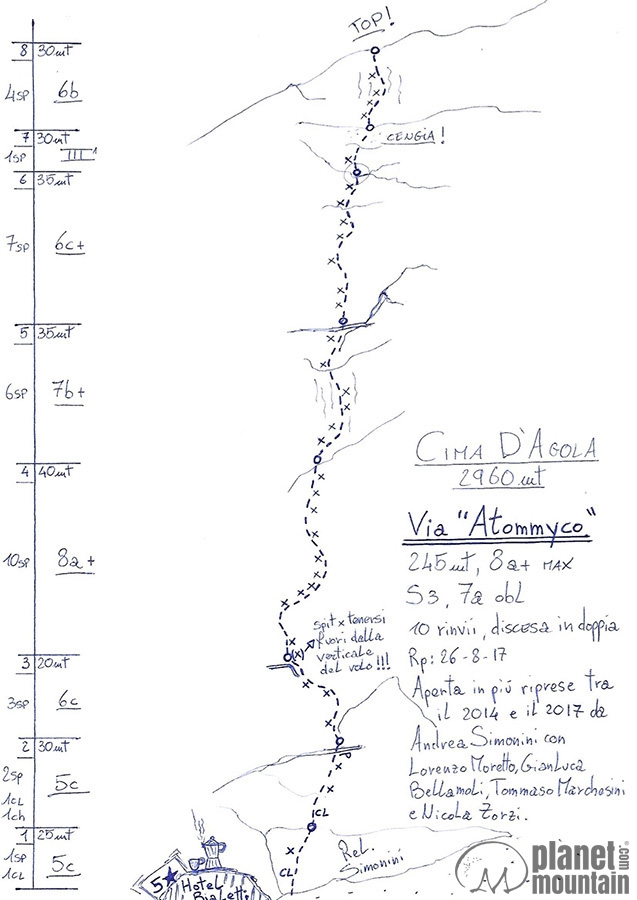 TOP!
8 30mt
4sp 6b
CENGIA!
7 30mt
1sp III
6 35mt
7sp 6c+
5 35mt
6sp 7b+
4 40mt
10sp 8a+
3 20mt
3sp 6c
2 30mt
2sp
1CL 5c
1ch
1 25mt
1sp 5c
1CL
spit x tenersi
fuori dalla
verticale
del volo!!!
P
CL
CL
Rel.
Simonini
5
Hotel
Bialetti
CIMA D'AGOLA
2960mt
Via "Atommyco"
245mt, 8a+ MAX
S3, 7a obl
10 rinvii, discesa in doppia
Rp: 26-8-17
Aperta in più riprese tra
il 2014 e il 2017 da
Andrea Simonini con
Lorenzo Moretto, Gianluca
Bellamoli, Tommaso Marchesini
e Nicola Zorzi.
planet
mountain
.com